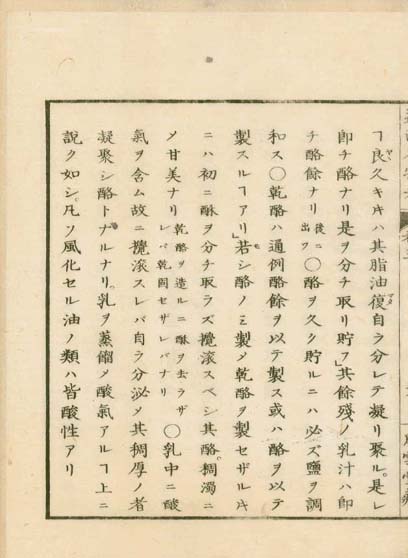 ヿ良久キ𪜈ハ其脂油復自ラ分レテ凝リ聚ル。是レ
即チ酪ナリ是ヲ分チ取リ貯フ」其餘殘ノ乳汁ハ即
チ酪餘ナリ後ニ出ツ〇酪ヲ久ク貯ルニハ必ズ鹽ヲ調
和ス〇乾酪ハ通例酪餘ヲ以テ製ス或ハ酪ヲ以テ
製スルヿアリ」若シ酪ノミ製メ乾酪ヲ製セザル𪜈
ニハ初ニ酥ヲ分チ取ラズ攪滾スベシ其酪稠濁ニ
メ甘美ナリ乾酪ヲ造ルニ酥ヲ去ラザレバ乾固セザレバナリ〇乳中ニ酸
氣ヲ含ム故ニ攪滾スレバ自ラ分泌メ其稠厚ノ者
凝聚シ酪トナルナリ。乳ヲ蒸餾メ酸氣アルヿ上ニ
說ク如シ。凡ソ風化セル油ノ類ハ皆酸性アリ